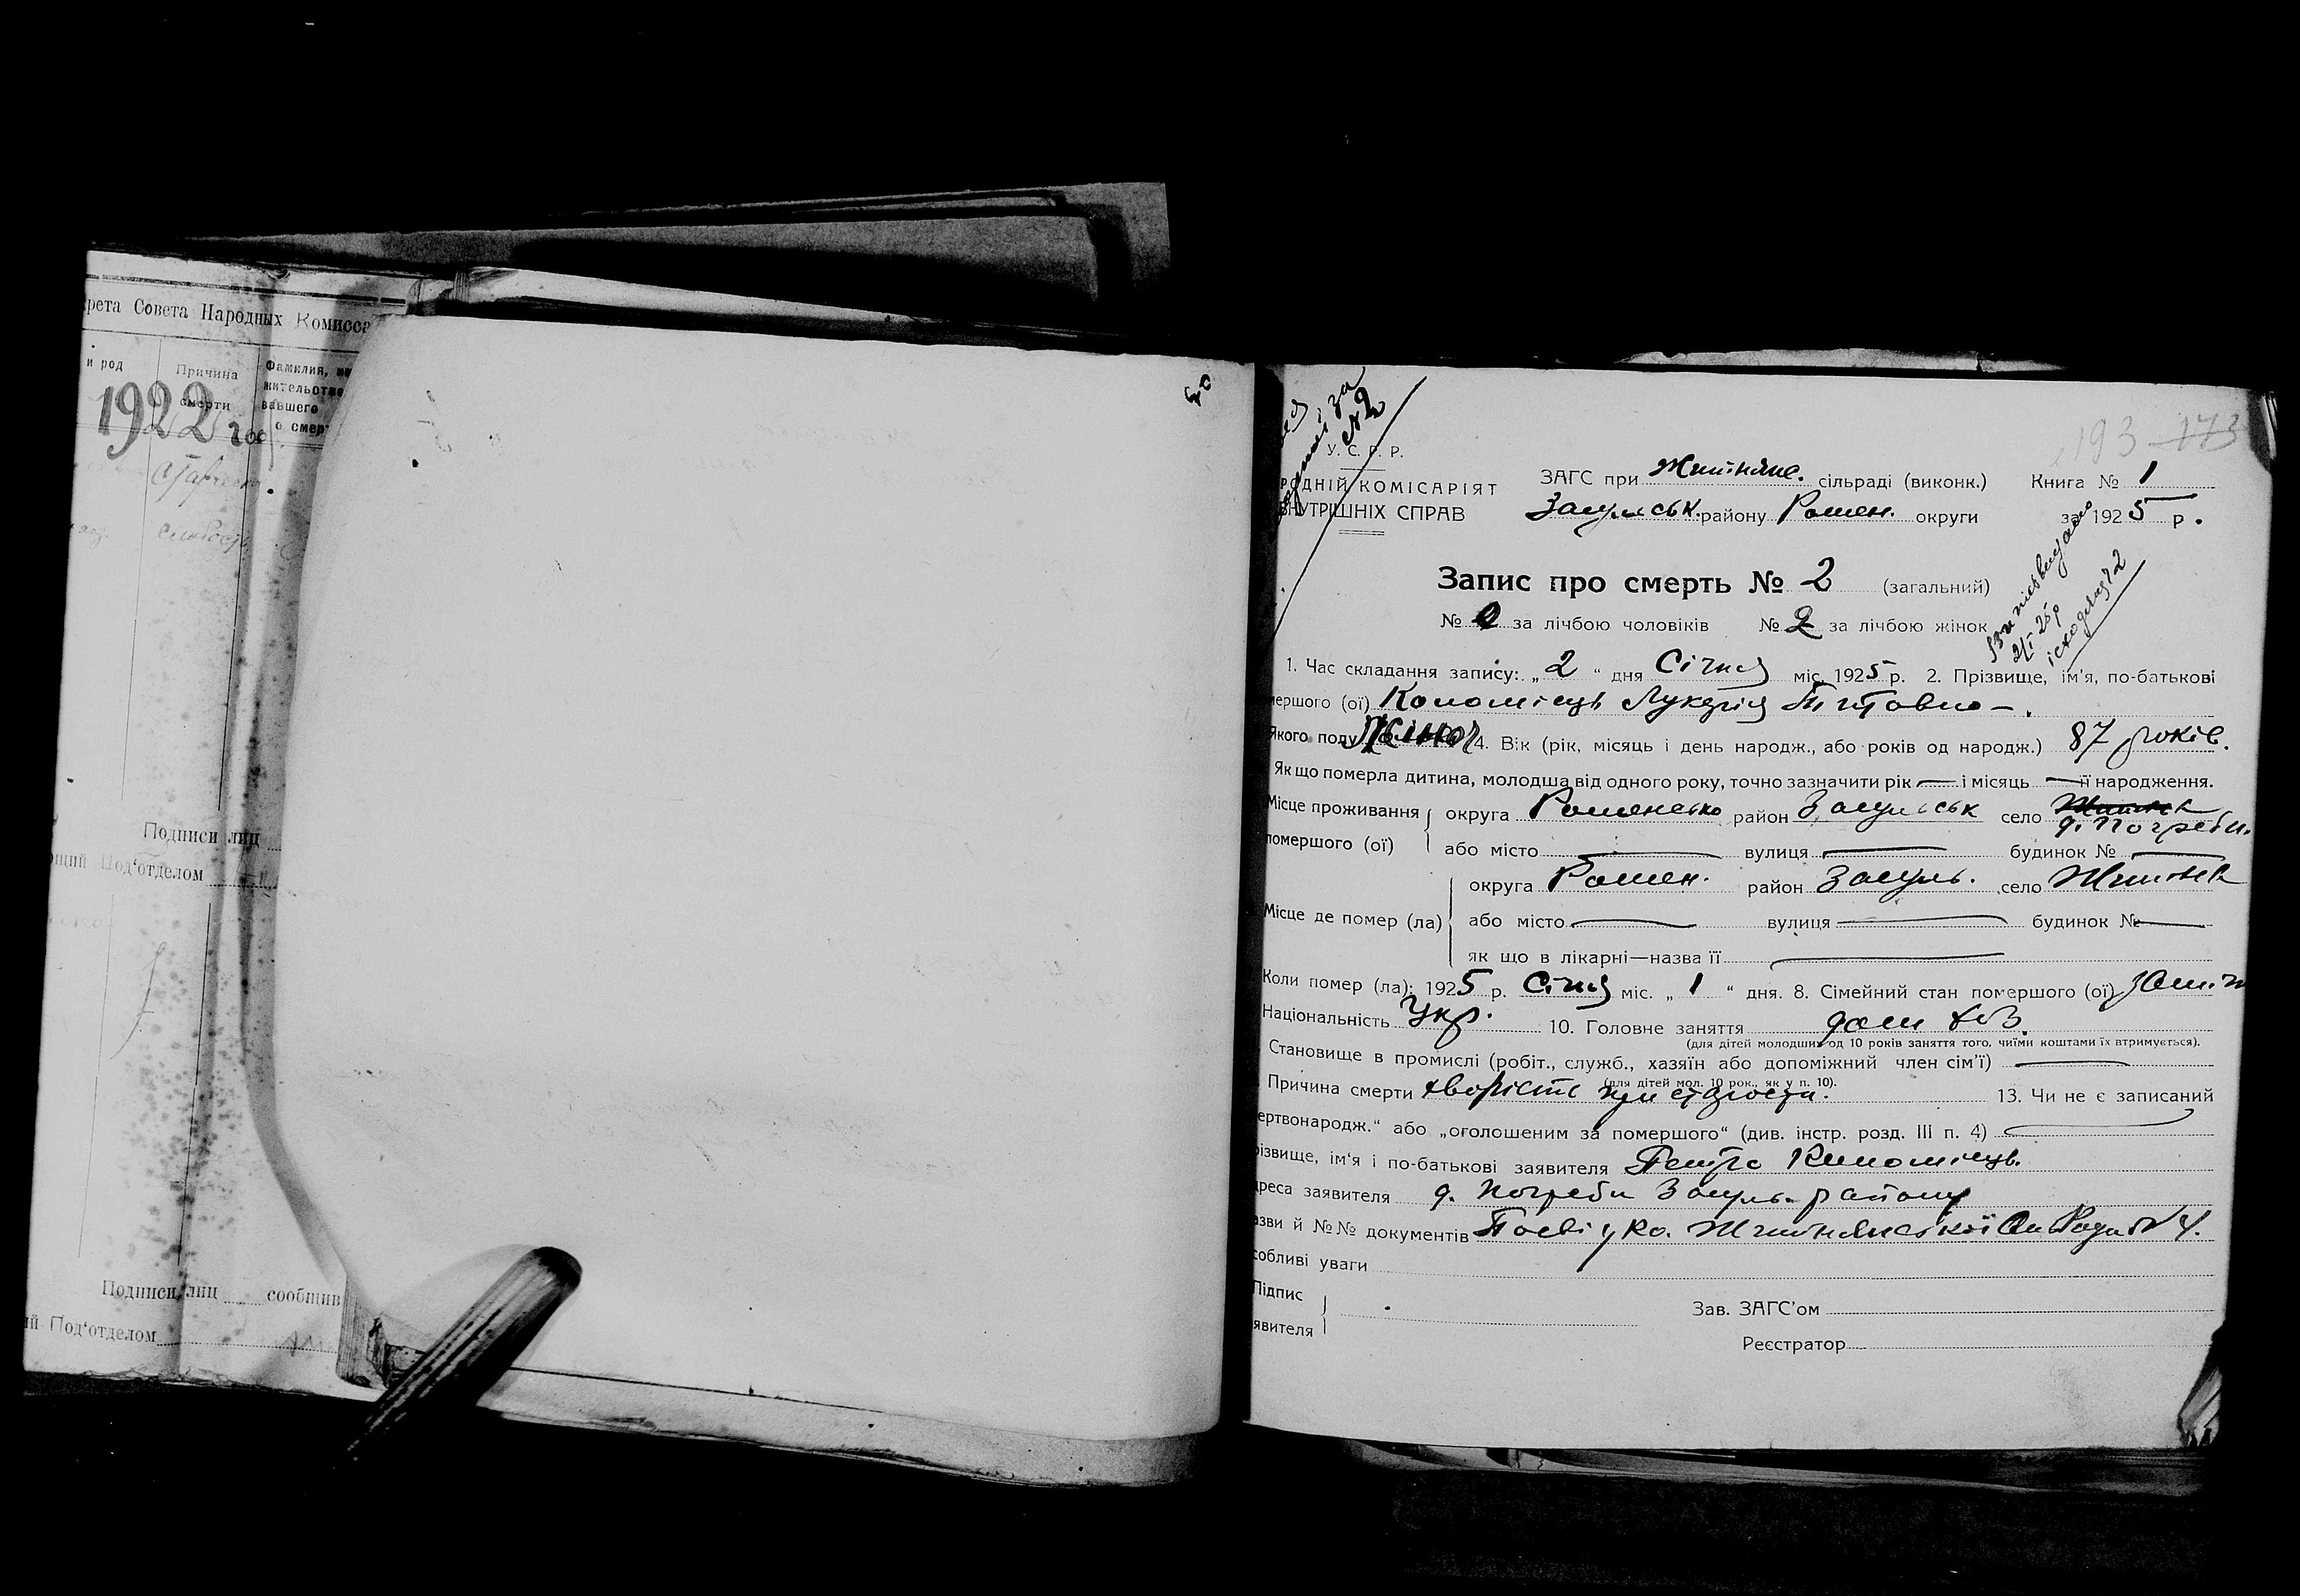 рета Совета Народных Комисса
и род
Причина
смерти
Фамилия,
жительство
вавшего
о смер
1922 год
Подписи лиц
ющий Под‘отделом
Подписи лиц сообщив
ий Под‘отделом
193 173
У. С. Р. Р.
РОДНІЙ КОМІСАРІЯТ
ВНУТРІШНІХ СПРАВ
ЗАГС при Житнянс. сільраді (виконк.) Книга № 1
Засульськ. району Ромен. округи за 1925 р.
Запис про смерть № 2 (загальний)
№ 0 за лічбою чоловіків № 2 за лічбою жінок
2/I 25 р
1. Час складання запису: „2“ дня Січня міс. 1925 р. 2. Прізвище, ім'я, по-батькові
мершого (ої) Коломієць Лукерія Титовна
Якого полу Жіноч 4. Вік (рік, місяць і день народж., або років од народж.) 87 років.
Як що померла дитина, молодша від одного року, точно зазначити рік — і місяць — її народження.
Місце проживання помершого (ої) округа Роменсько район Засульськ село д. Погреби.
або місто — вулиця — будинок № —
Місце де помер (ла) округа Ромен. район Засуль. село Житнє
або місто — вулиця — будинок № —
як що в лікарні—назва її —
Коли помер (ла): 1925 р. Січня міс. „1“ дня. 8. Сімейний стан помершого (ої) заміж
Національність Укр. 10. Головне заняття дом хоз.
(для дітей молодших од 10 років заняття того, чиїми коштами їх втримується).
Становище в промислі (робіт., служб., хазяїн або допоміжний член сім'ї) —
(для дітей мол. 10 рок., як у п. 10).
Причина смерти хворість при старости. 13. Чи не є записаний
ертвонародж.“ або „оголошеним за помершого“ (див. інстр. розд. III п. 4) —
різвище, ім'я і по-батькові заявителя Петро Коломієць.
дреса заявителя д. Погреби Засуль. району
азви й №№ документів Посвідка Житнянської Сіл Ради № 4.
собливі уваги
Підпис
явителя
Зав. ЗАГС'ом
Реєстратор